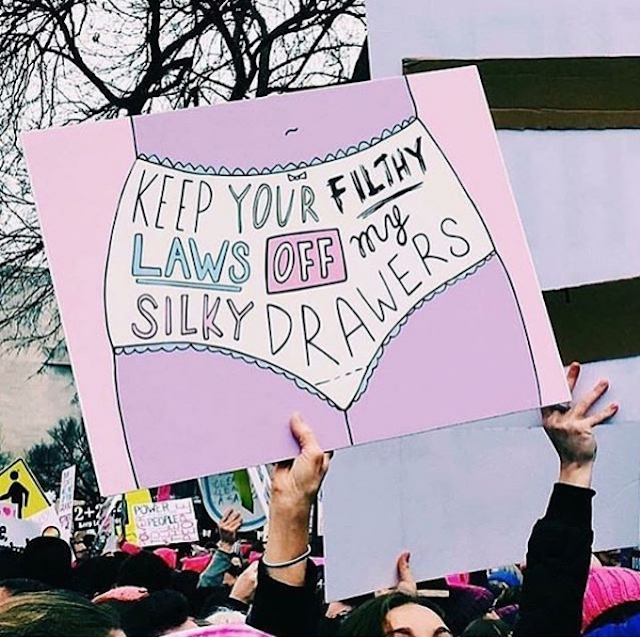 KEEP YOUR FILTHY
LAWS OFF my
SILKY DRAWERS
POWER
PEOPLE
2+2